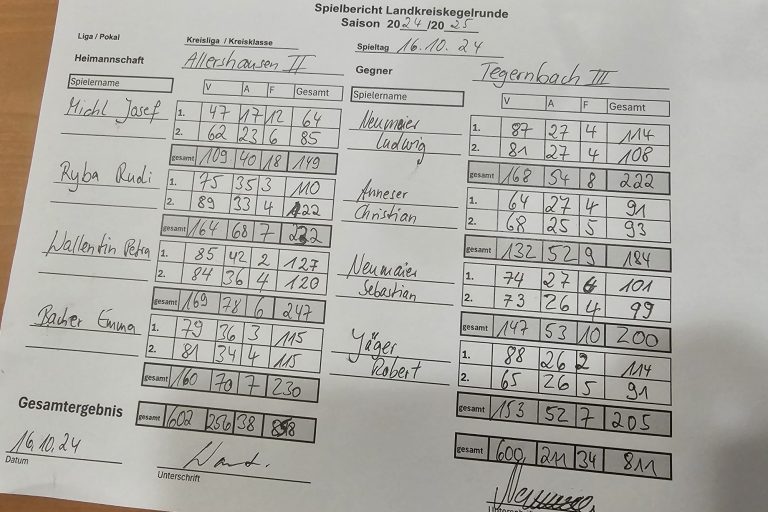 Spielbericht Landkreiskegelrunde
Saison 2024/2025
Liga / Pokal Kreisliga / Kreisklasse Spieltag 16.10.24
Heimannschaft Allershausen II Gegner Tegernbach III
Spielername V A F Gesamt Spielername V A F Gesamt
Michl Josef 1. 47 17 12 64 Neumaier 1. 87 27 4 114
2. 62 23 6 85 Ludwig 2. 81 27 4 108
gesamt 109 40 18 149 gesamt 168 54 8 222
Ryba Rudi 1. 75 35 3 110 Anneser 1. 64 27 4 91
2. 89 33 4 122 Christian 2. 68 25 5 93
gesamt 164 68 7 232 gesamt 132 52 9 184
Wallentin Petra 1. 85 42 2 127 Neumaier 1. 74 27 6 101
2. 84 36 4 120 Sebastian 2. 73 26 4 99
gesamt 169 78 6 247 gesamt 147 53 10 200
Bacher Emma 1. 79 36 3 115 Jäger 1. 88 26 2 114
2. 81 34 4 115 Robert 2. 65 26 5 91
gesamt 160 70 7 230 gesamt 153 52 7 205
Gesamtergebnis gesamt 602 256 38 858 gesamt 600 211 34 811
16.10.24
Datum Unterschrift